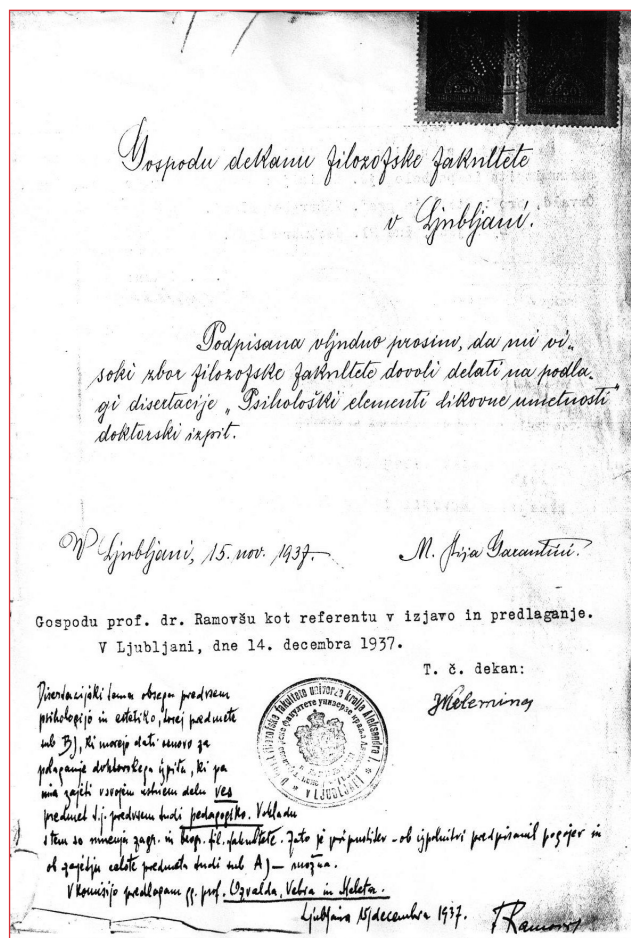 Gospodu dekanu filozofske fakultete
v Ljubljani.
Podpisana vljudno prosim, da mi vi„
soki zbor filozofske fakultete dovoli delati na podla„
gi disertacije „Psihološki elementi likovne umetnosti"
doktorski izpit.
V Ljubljani, 15. nov. 1937.
M. Pija Garantini.
Gospodu prof. dr. Ramovšu kot referentu v izjavo in predlaganje.
V Ljubljani, dne 14. decembra 1937.
T. č. dekan:
JKelemina
Disertacijski tema obsega predvsem
psihologijo in estetiko, torej predmete
sub B), ki morejo dati osnovo za
polaganje doktorskega izpita, ki pa
mora zajeti v svojem ustnem delu ves
predmet t.j. predvsem tudi pedagogiko. V skladu
s tem so mnenja zagr. in beogr. fil. fakultete. Zato je pripustitev - ob izpolnitvi predpisanih pogojev in
ob zajetju celote predmeta tudi sub A) - možna.
V komisijo predlagam gg. prof. Ozvalda, Vebra in Meleta.
Ljubljana 15/decembra 1937.
FRamovš
V LJUBLJANI